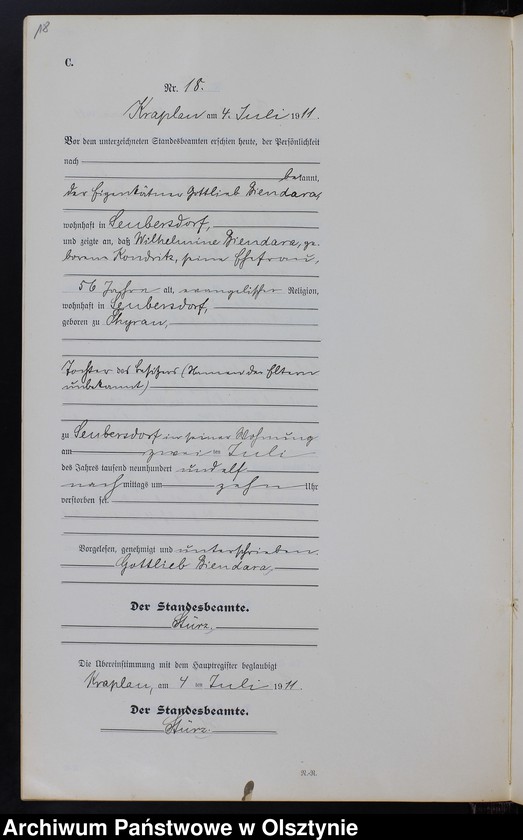 18
C.
Nr. 18.
Kraplau am 4. Juli 1911.
Vor dem unterzeichneten Standesbeamten erschien heute, der Persönlichkeit
nach
bekannt,
der Eigenkätner Gottlieb Biendara,
wohnhaft in Seubersdorf,
und zeigte an, daß Wilhelmine Biendara, ge-
borene Kondrik, seine Ehefrau,
56 Jahre alt, evangelischer Religion,
wohnhaft in Seubersdorf,
geboren zu Thyrau,
Tochter des Besitzers (Namen der Eltern
unbekannt)
zu Seubersdorf in seiner Wohnung
am zwei ten Juli
des Jahres tausend neunhundert und elf
nach mittags um zehn Uhr
verstorben sei.
Vorgelesen, genehmigt und unterschrieben.
Gottlieb Biendara,
Der Standesbeamte.
Stürz.
Die Übereinstimmung mit dem Hauptregister beglaubigt
Kraplau, am 4 ten Juli 1911.
Der Standesbeamte.
Stürz.
Archiwum Państwowe w Olsztynie